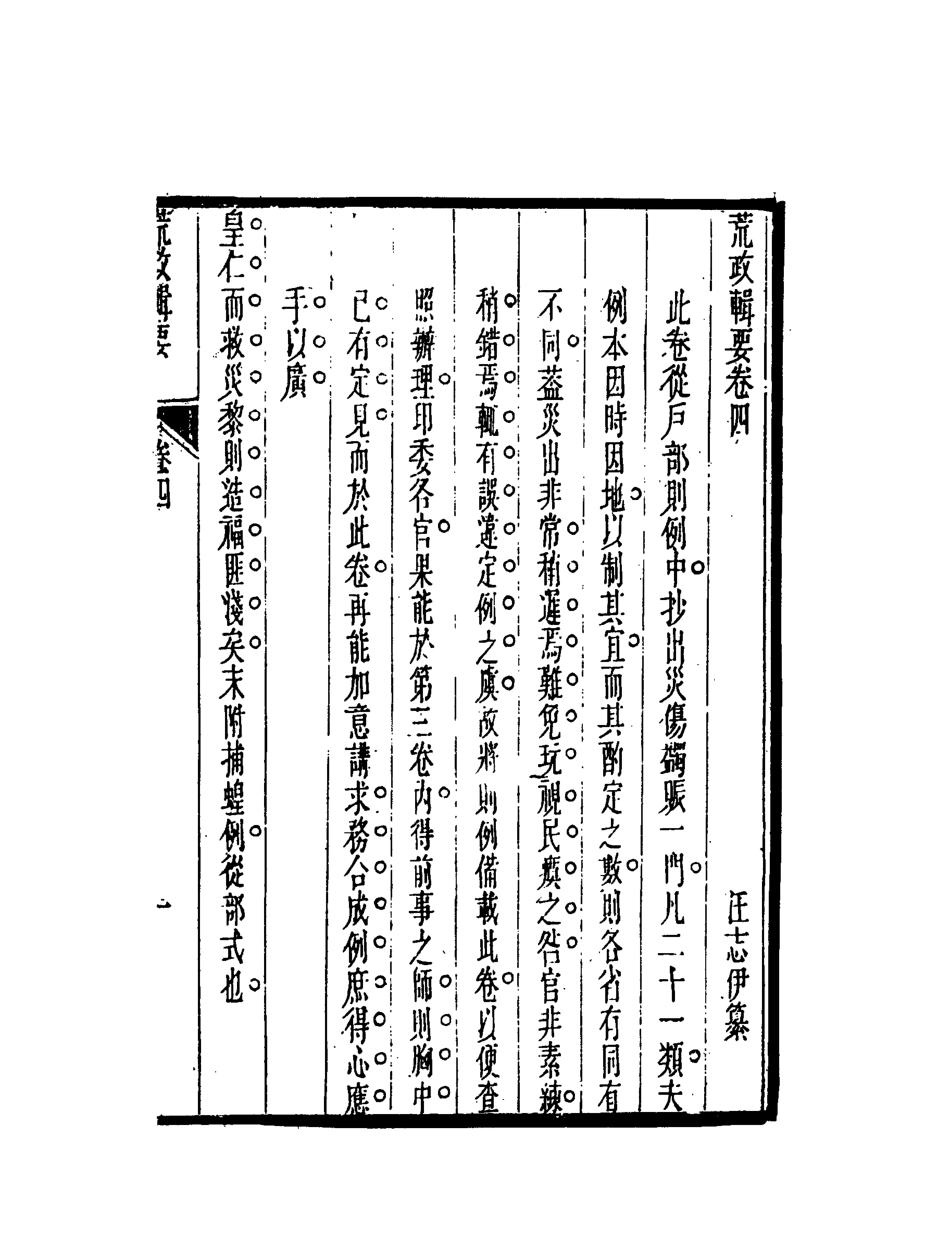 荒政輯要卷四 汪志伊纂
此卷從戶部則例中抄出災傷蠲賑一門凡二十一類夫
例本因時因地以制其宜而其酌定之數則各省有同有
不同葢災出非常稍遲焉難免玩視民瘼之咎官非素練
稍錯焉輒有誤違定例之虞故將則例備載此卷以便查
照辦理印委各官果能於第三卷內得前事之師則胸中
已有定見而於此卷再能加意講求務合成例庶得心應
手以廣
皇仁而救災黎則造福匪淺矣末附捕蝗例從部式也
荒政輯要 卷四 一